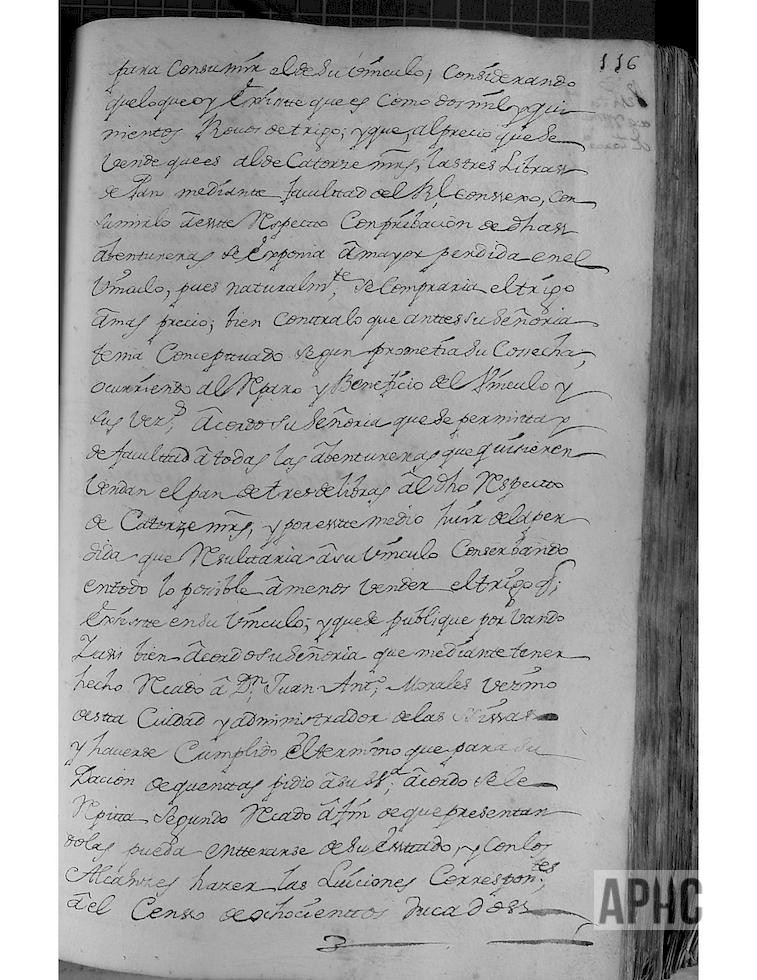 116
para Consumir el de su Vinculo; Considerando
que lo que oy Existte que es como dos mil y qui
nientos Rovos de trigo; y que, al precio que se
vende que es al de Catorze mrs, las tres Libras
de Pan mediante facultad del Rl. Conssexo, con
sumirlo a estte Respecto Con privacion de dhas
abentureras se Exponia a mayor perdida en el
Vinculo, pues naturalmte, se Compraria el trigo
a mas precio; bien Contra lo que anttes su señoria
tenia Conceptuado segun prometia su Cosecha,
ocurriendo al Reparo y Beneficio del Vinculo y
sus Vezs, acordo su Señoria que se permitta y
de facultad a todas las abentureras que quisieren
Vendan el pan de tres de libras al dho Respecto
de Catorze mrs, y por estte medio huir de la per
dida que Resultaria a su Vinculo Conserbando
en todo lo posible a menos vender el trigo q;
Existte en su Vinculo; y que se publique por Vando
Y assi bien acordo su Señoria que mediante tener
hecho Recado a Dn. Juan Anto, Morales Vezino
de sta Ciudad y administrador de las Missas
y haverse Cumplido el termino que para su
Dacion de quenttas pidio a su Sa, acordo se le
Repitta Segundo Recado a fin de que presentan
dolas pueda entterarse de su Esttado, y Con los
Alcanzes hazer las Luiciones Correspontes,
a el Censo de ochocienttos Ducados
APHC